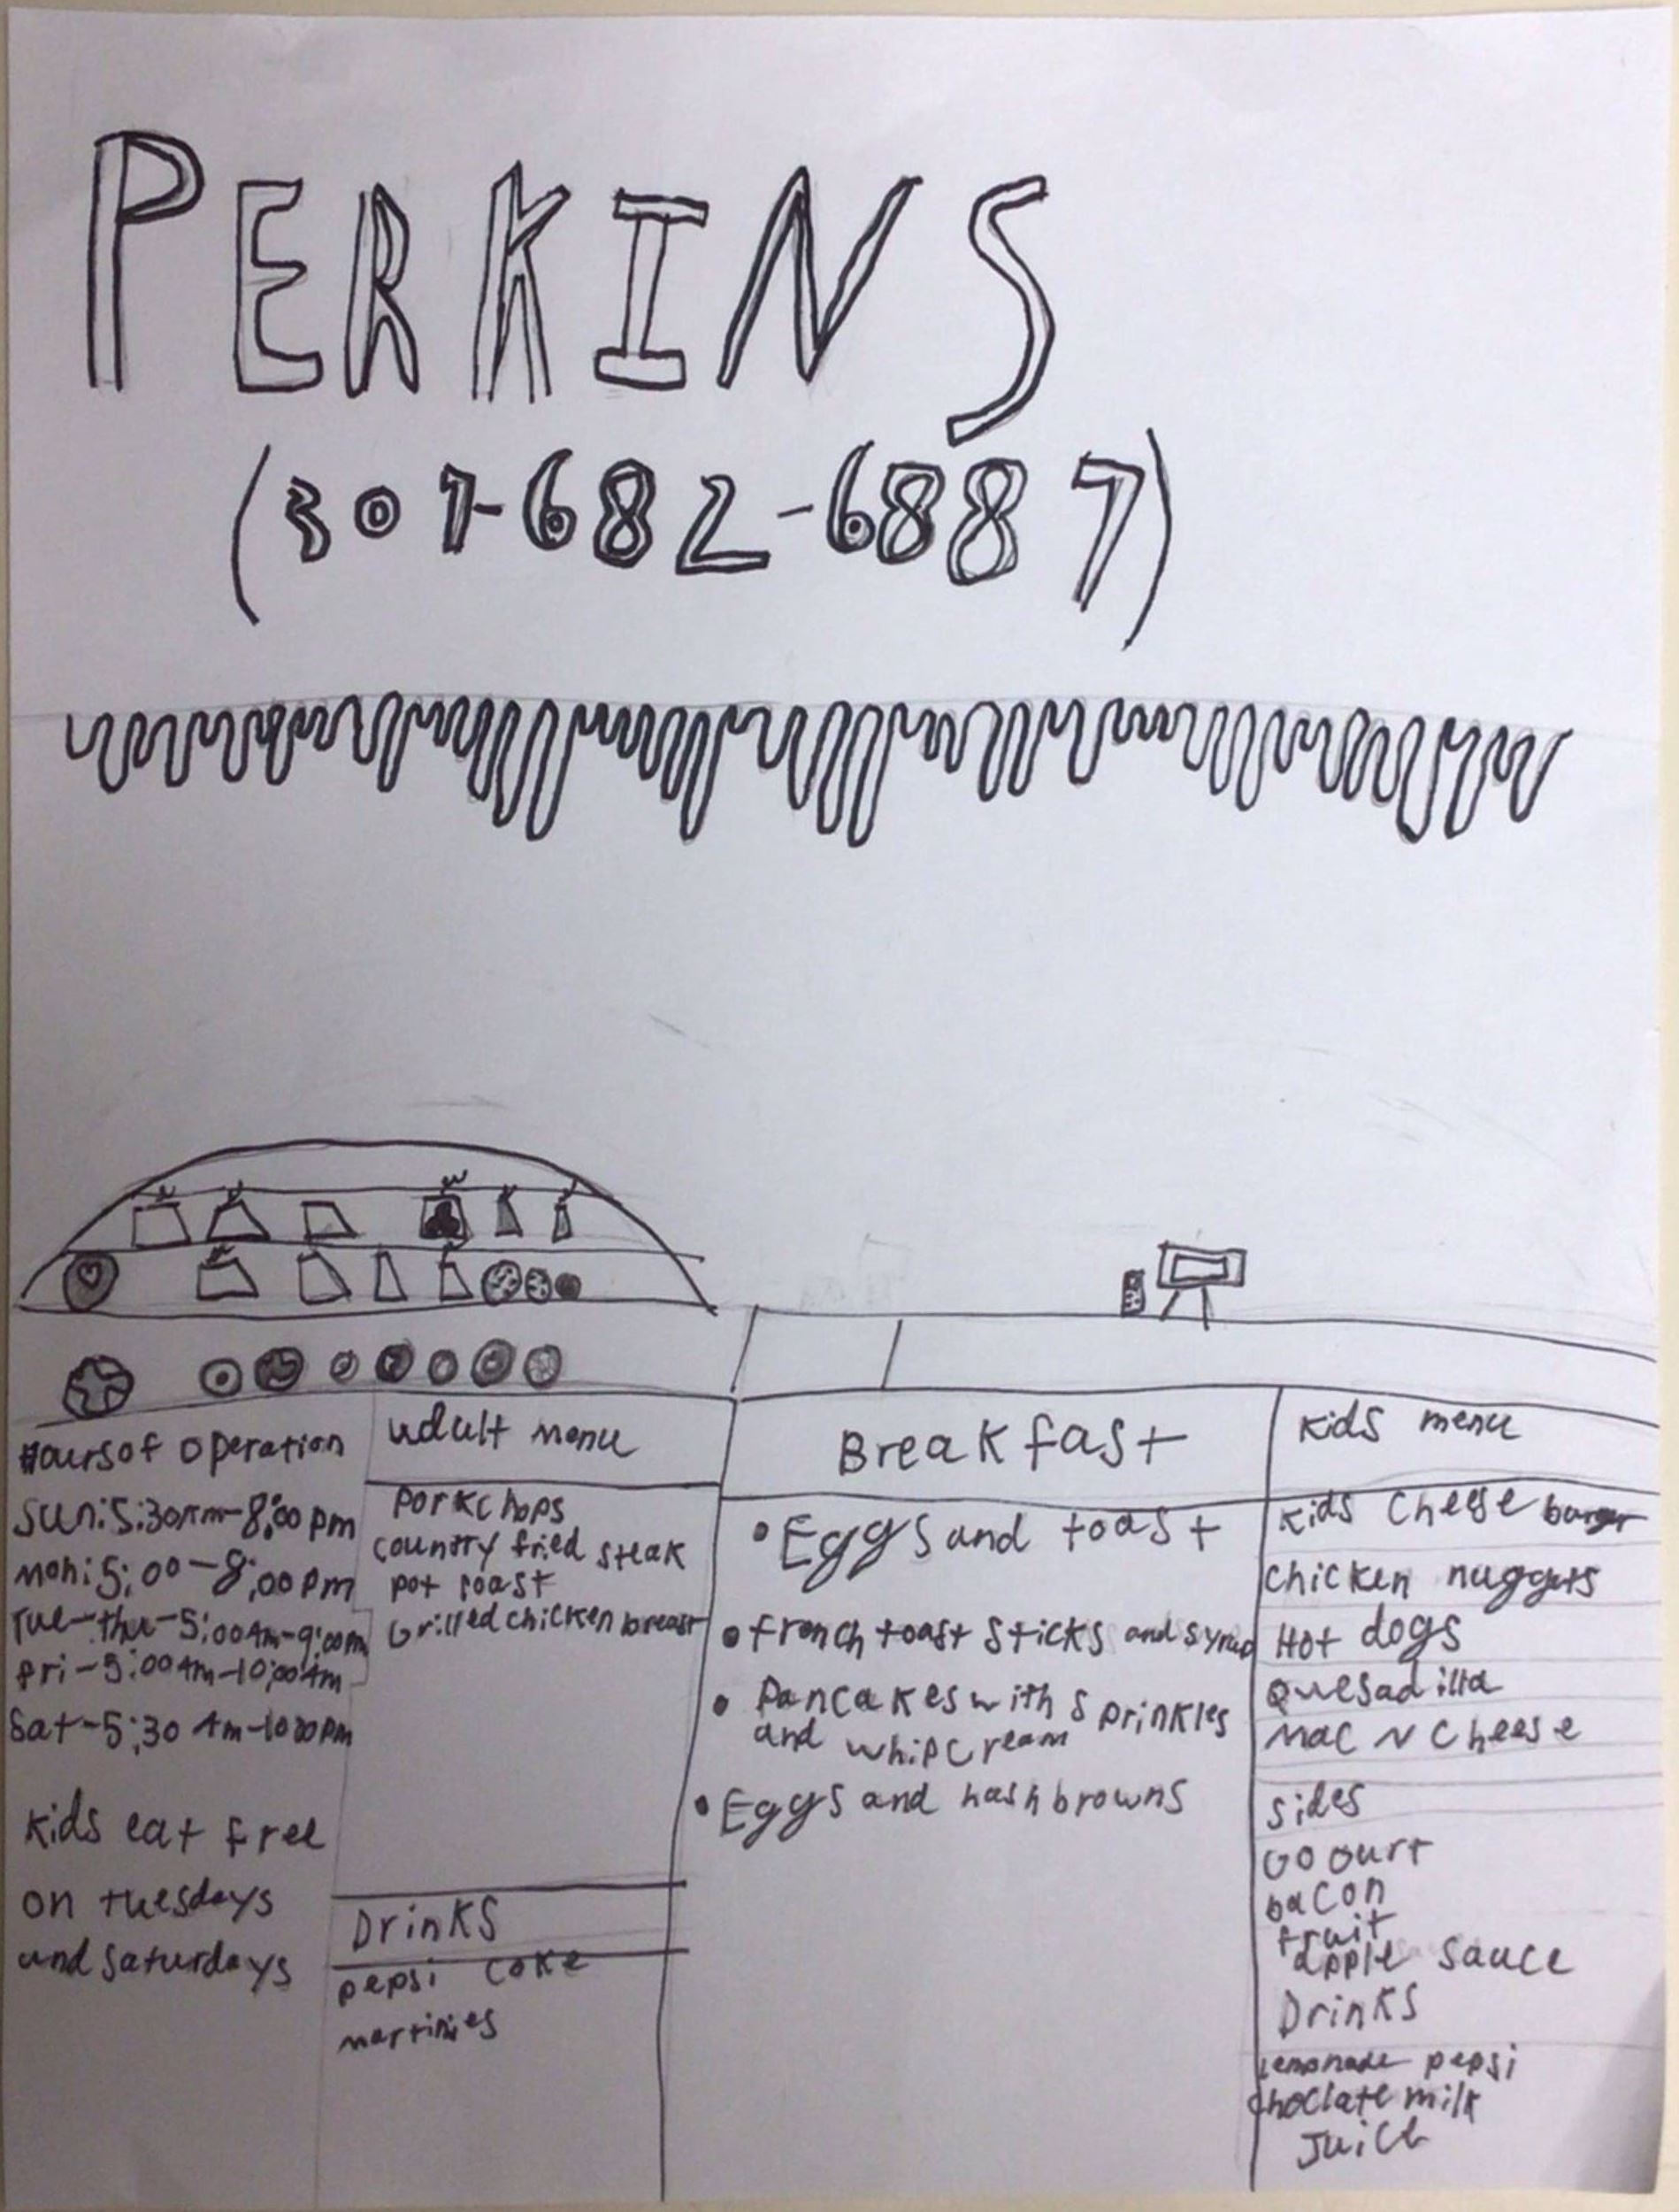 PERKINS
(301-682-6887)
Hoursof operation
Sun:5:30Am-8:00 pm
Mon:5:00-8:00pm
Tue-thu-5:00Am-9:00pm
Fri-5:00Am-10:00Am
Sat-5:30 Am-1000pm
Kids eat free
on tuesdays
and saturdays
adult menu
Porkchops
country fried steak
pot roast
Grilled chicken breast
Drinks
pepsi coke
martinies
Breakfast
• Eggs and toast
• french toast sticks and syrup
• Pancakes with sprinkles
and whipcream
• Eggs and hashbrowns
Kids menu
Kids Cheese burger
chicken nuggets
Hot dogs
Quesadilla
Mac N Cheese
sides
GO Gurt
bacon
fruit
apple sauce
Drinks
Lemonade pepsi
choclate milk
Juice